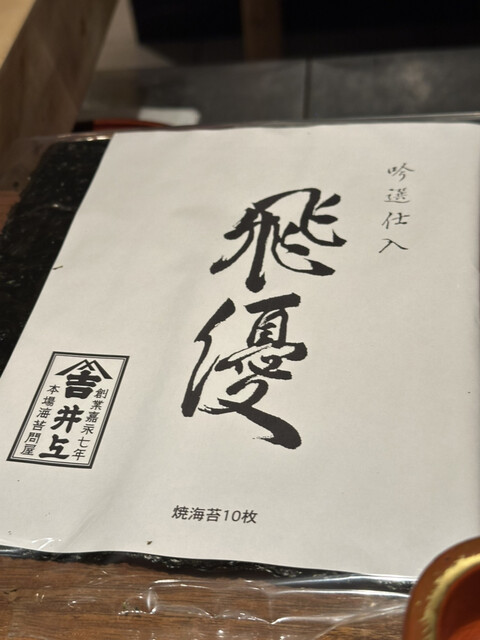 吟選仕入
飛優
吉井上
創業嘉永七年
本場海苔問屋
焼海苔10枚